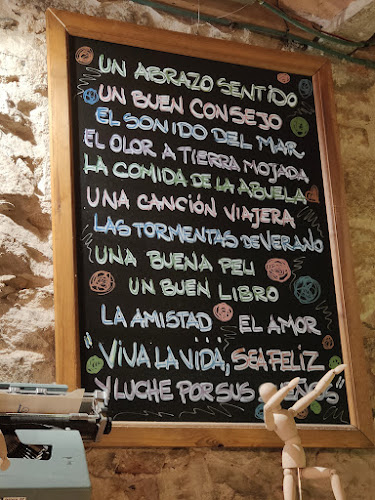 UN ABRAZO SENTIDO
UN BUEN CONSEJO
EL SONIDO DEL MAR
EL OLOR A TIERRA MOJADA
LA COMIDA DE LA ABUELA
UNA CANCIÓN VIAJERA
LAS TORMENTAS DE VERANO
UNA BUENA PELI
UN BUEN LIBRO
LA AMISTAD EL AMOR
"VIVA LA VIDA, SEA FELIZ
Y LUCHE POR SUS SUEÑOS"